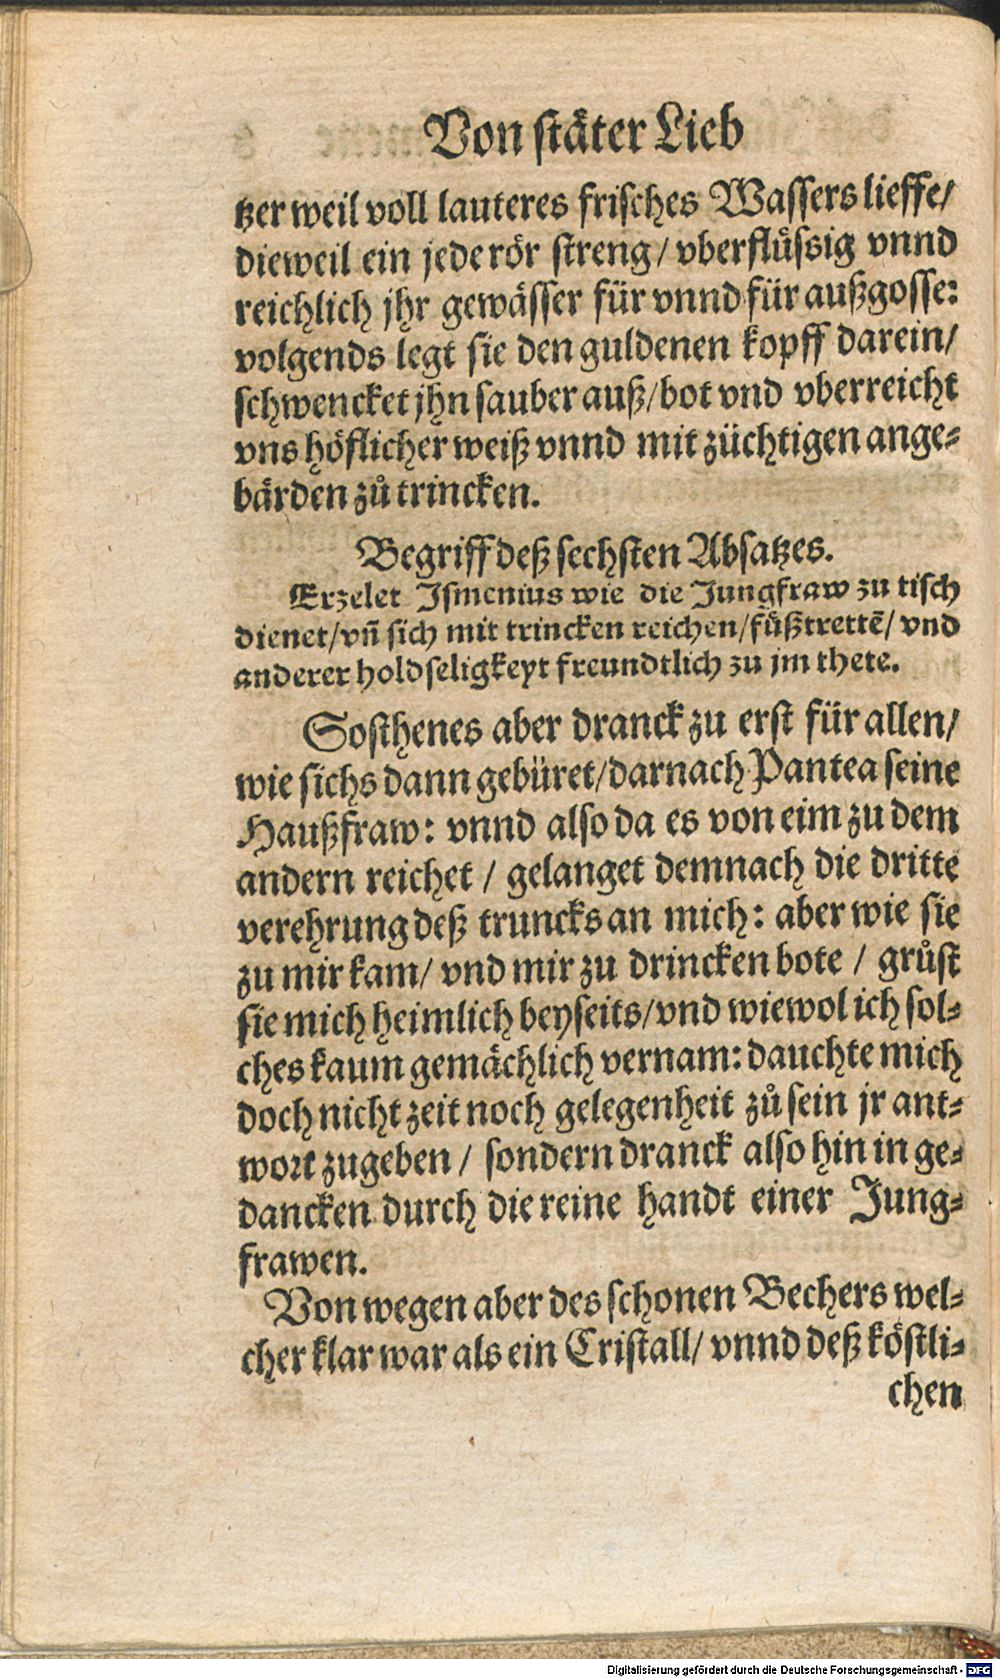 Von stäter Lieb
tzer weil voll lauteres frisches Wassers lieffe/
dieweil ein jede rör streng/ vberflüssig vnnd
reichlich jhr gewässer für vnnd für außgosse:
volgends legt sie den guldenen kopff darein/
schwencket jhn sauber auß/ bot vnd vberreicht
vns höflicher weiß vnnd mit züchtigen ange⸗
bärden zů trincken.
Begriff deß sechsten Absatzes.
Erzelet Ismenius wie die Jungfraw zu tisch
dienet/ vñ sich mit trincken reichen/ füßtrettē/ vnd
anderer holdseligkeyt freundtlich zu jm thete.
Sosthenes aber dranck zu erst für allen/
wie sichs dann gebüret/ darnach Pantea seine
Haußfraw: vnnd also da es von eim zu dem
andern reichet / gelanget demnach die dritte
verehrung deß truncks an mich: aber wie sie
zu mir kam/ vnd mir zu drincken bote / grůst
sie mich heimlich beyseits/ vnd wiewol ich sol⸗
ches kaum gemächlich vernam: dauchte mich
doch nicht zeit noch gelegenheit zů sein jr ant⸗
wort zugeben / sondern dranck also hin in ge⸗
dancken durch die reine handt einer Jung⸗
frawen.
Von wegen aber des schonen Bechers wel⸗
cher klar war als ein Cristall/ vnnd deß köstli⸗
chen
Digitalisierung gefördert durch die Deutsche Forschungsgemeinschaft - DFG